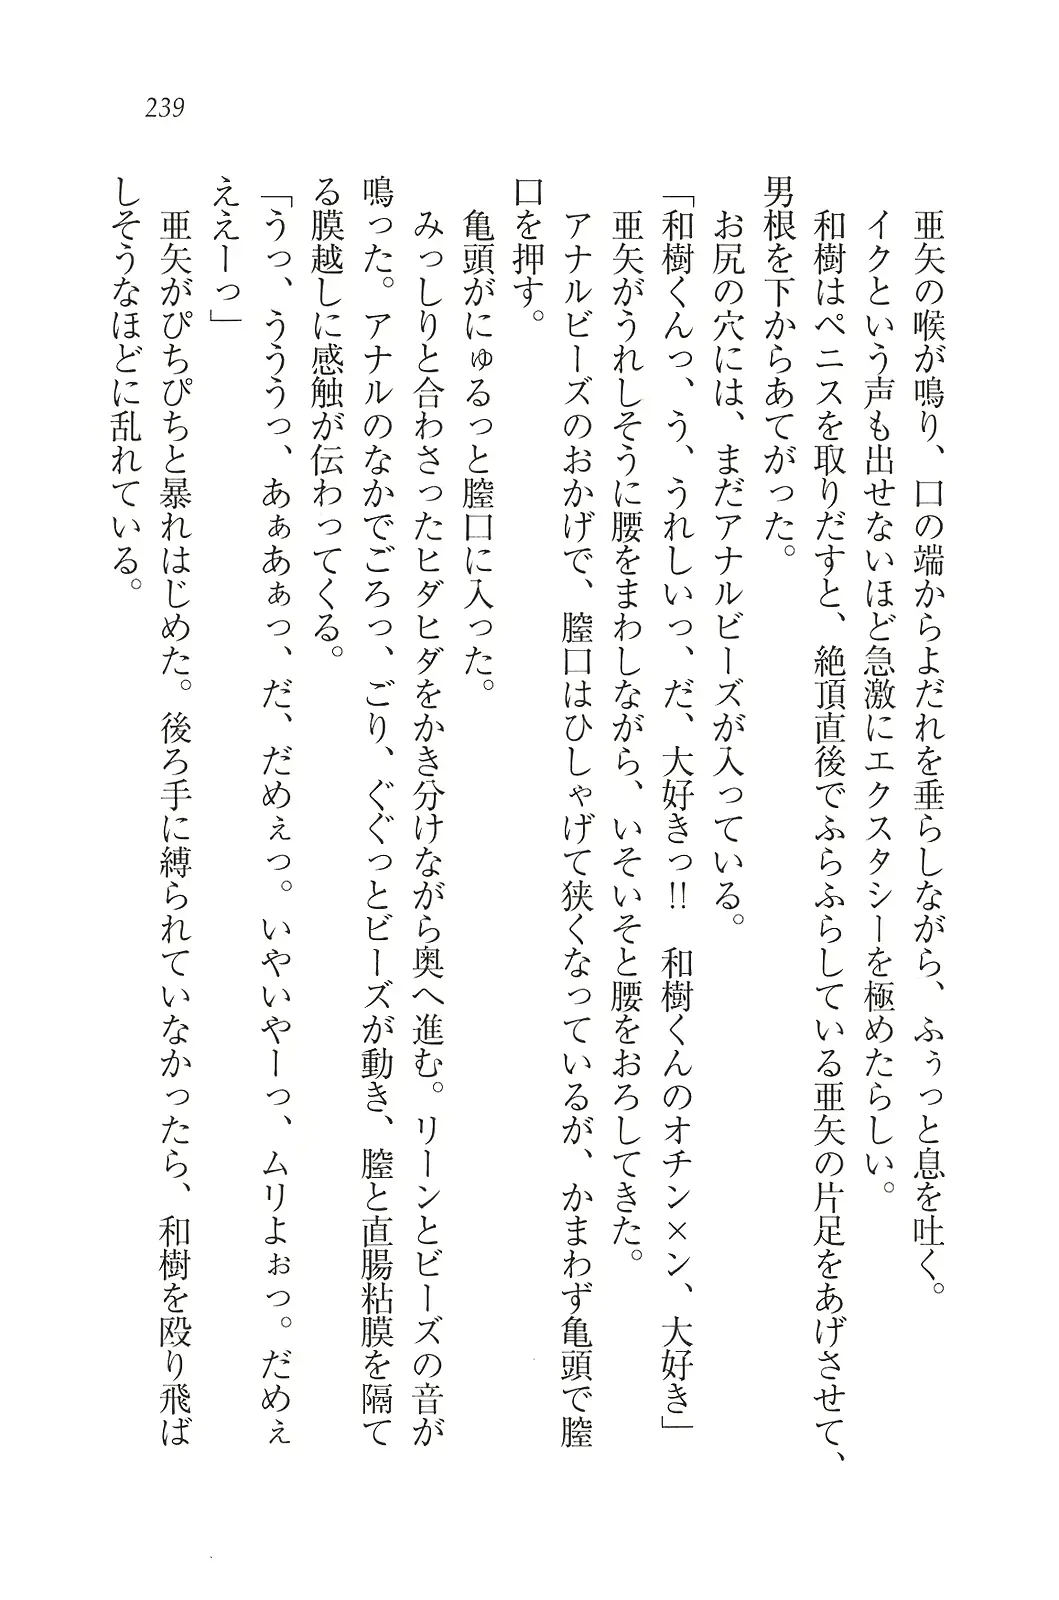 239
亜矢の喉が鳴り、口の端からよだれを垂らしながら、ふぅっと息を吐く。
イクという声も出せないほど急激にエクスタシーを極めたらしい。
和樹はペニスを取りだすと、絶頂直後でふらふらしている亜矢の片足をあげさせて、
男根を下からあてがった。
お尻の穴には、まだアナルビーズが入っている。
「和樹くんっ、う、うれしいっ、だ、大好きっ!!　和樹くんのオチン×ン、大好き」
亜矢がうれしそうに腰をまわしながら、いそいそと腰をおろしてきた。
アナルビーズのおかげで、膣口はひしゃげて狭くなっているが、かまわず亀頭で膣
口を押す。
亀頭がにゅるっと膣口に入った。
みっしりと合わさったヒダヒダをかき分けながら奥へ進む。リーンとビーズの音が
鳴った。アナルのなかでごろっ、ごり、ぐぐっとビーズが動き、膣と直腸粘膜を隔て
る膜越しに感触が伝わってくる。
「うっ、うううっ、あぁあぁっ、だ、だめぇっ。いやいやーっ、ムリよぉっ。だめぇ
ええーっ」
亜矢がぴちぴちと暴れはじめた。後ろ手に縛られていなかったら、和樹を殴り飛ば
しそうなほどに乱れている。